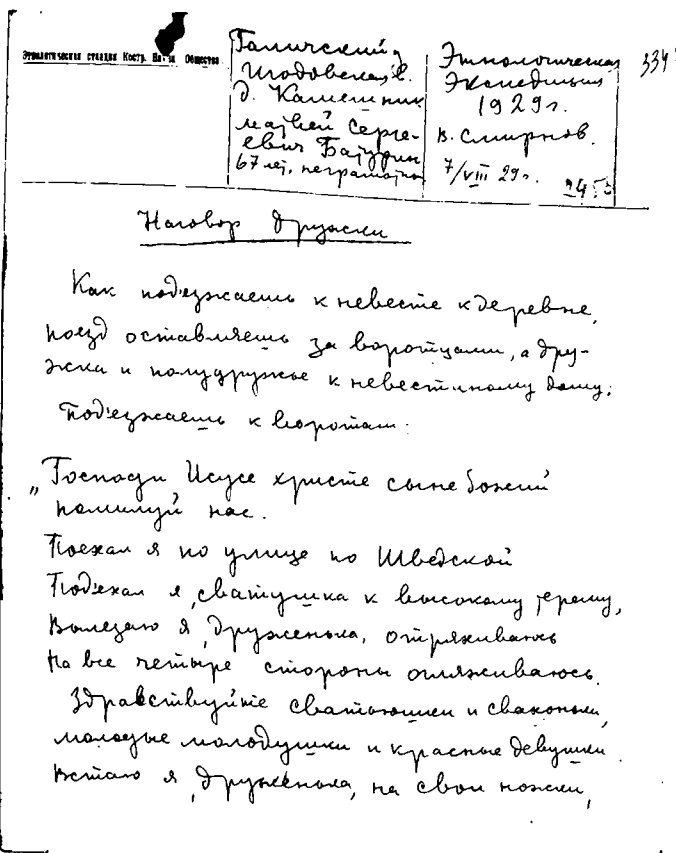 Этнологическая станция Костр. Науч. Общества
Галичский у.
Игодовская в.
д. Калешник
Матвей Серге-
евич Батурин
67 лет, неграмотн
Этнологическая
Экспедиция
1929 г.
В. Смирнов.
7/VIII 29 г.
334
Наговор дружки
Как подъезжаешь к невесте к деревне,
поезд оставляешь за воротцами, а дру-
жка и полудружье к невестиному дому.
Подъезжаешь к воротам.
„Господи Исусе христе сыне божий
помилуй нас.
Поехал я по улице по Шведской
Подъехал я, сватушка к высокому терему,
Вылезаю я, друженька, отряживаюсь
На все четыре стороны огляживаюсь.
Здравствуйте сватьюшки и свахоньки,
молодые молодушки и красные девушки.
Встаю я, друженька, на свои ножки,